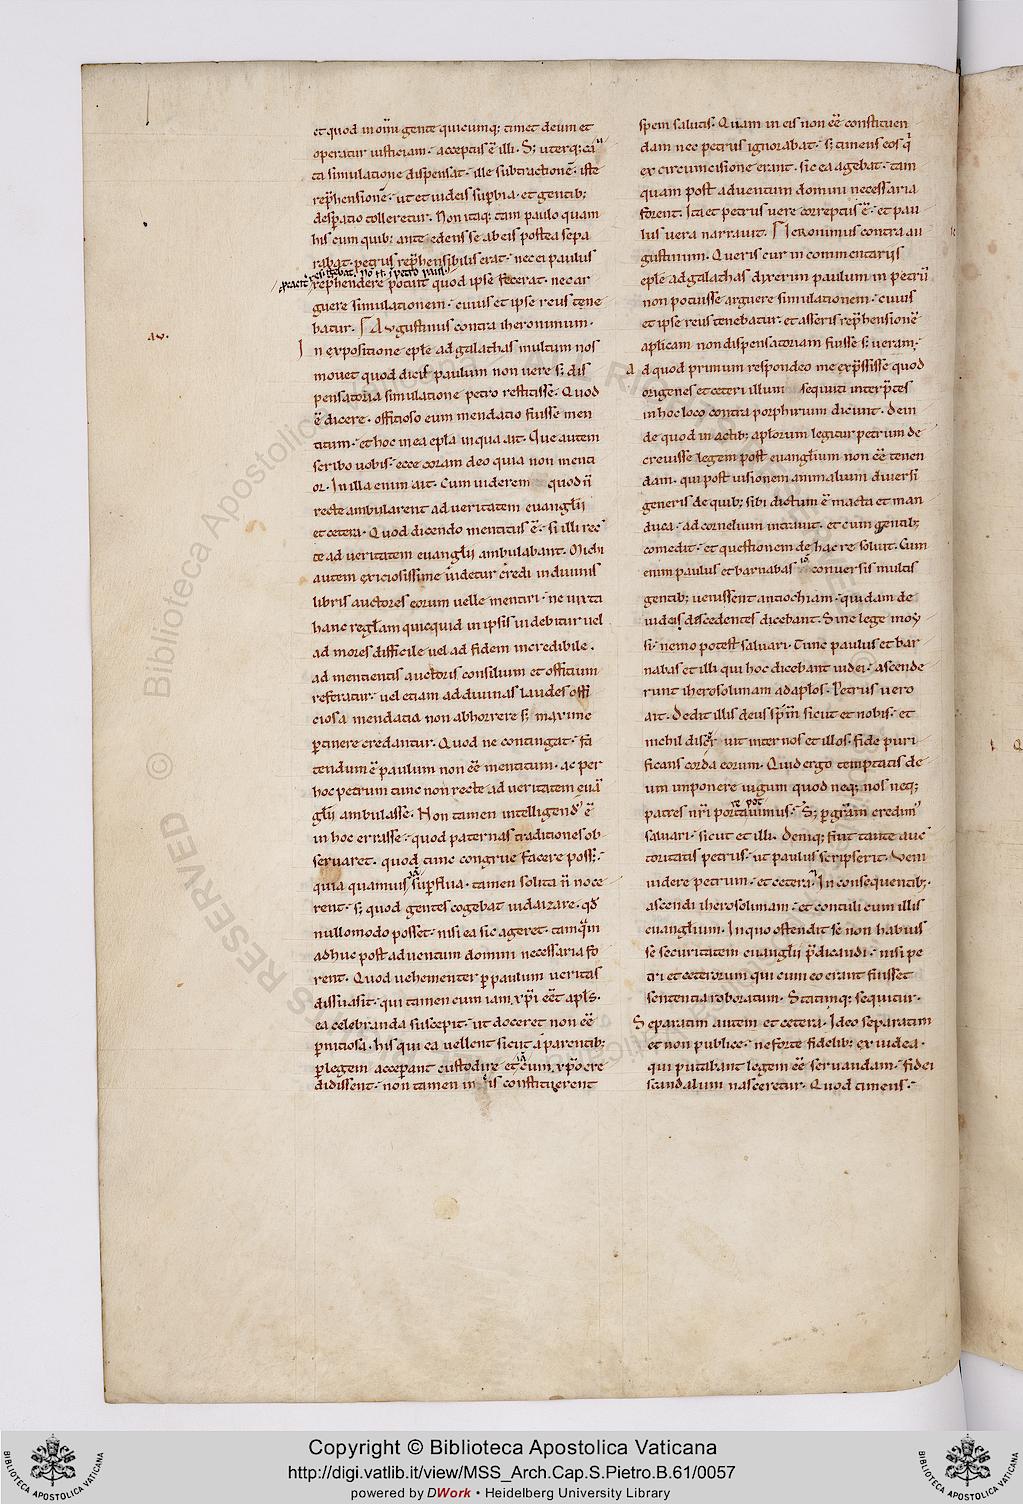 et quod in omni gente quicumq; timet deum et
operatur iusticiam acceptus ē illi. S; uterq; cau
ta simulatione dispensat. ille subtractionē. iste
rep̄hensionē. ut et iudeis sup̄bia. et gentib;
desp̄atio tolleretur. Non itaq; tam paulo quam
his cum quib; ante edens se ab eis postea sepa
rabat. petrus rep̄hensibilis erat. nec ei paulus
rep̄hendere potuit quod ipse fecerat. nec ar
guere simulationem. cuius et ipse reus tene
batur. Augustinus contra iheronimum.
au.
In expositione ep̄le ad galathas multum nos
mouet quod dicis paulum non uere s; dis
pensatoria simulatione petro restitisse. Quod
ē dicere. officioso eum mendatio fuisse men
titum. et hoc in ea ep̄la in qua ait. Que autem
scribo uobis. ecce coram deo quia non menti
or. In illa enim ait. Cum uiderem quod n̄
recte ambularent ad ueritatem euanglii
et cetera. Quod dicendo mentitus ē. si illi rec
te ad ueritatem euanglii ambulabant. Michi
autem exiciosissime uidetur credi in diuinis
libris auctores eorum uelle mentiri. ne iuxta
hanc reglam quicquid in ipsis uidebitur uel
ad mores difficile uel ad fidem incredibile.
ad mentientis auctoris consilium et officium
referatur. uel etiam ad diuinas laudes offi
ciosa mendatia non abhorrere s; maxime
p̄tinere credantur. Quod ne contingat. fa
tendum ē paulum non eē mentitum. ac per
hoc petrum tunc non recte ad ueritatem euā
glii ambulasse. Non tamen intelligend' ē
in hoc errasse. quod paternas traditiones ob
seruaret. quod tunc congrue facere poss;
quia quamuis sup̄flua. tamen solita n̄ noce
rent. s; quod gentes cogebat iudaizare. qd̄
nullo modo posset. nisi ea sic ageret. tamq̄m
adhuc post aduentum domini necessaria fo
rent. Quod uehementer p̄ paulum ueritas
dissuasit. qui tamen cum iam xp̄i eēt apl̄s.
ea celebranda suscepit. ut doceret non eē
p̄nitiosa. his qui ea uellent sicut a parentib;
p̄ legem acceperant custodire et cum xp̄o cre
didissent. non tamen in his constituerent
spem salutis. Quam in eis non eē constituen
dam nec petrus ignorabat. s; timens eos q
ex circumcisione erant. sic ea agebat. tam
quam post aduentum domini necessaria
forent. Ita et petrus uere correptus ē. et pau
lus uera narrauit. Ieronimus contra au
gustinum. Queris cur in commentariis
ep̄le ad galathas dixerim paulum in petrū
non potuisse arguere simulationem. cuius
et ipse reus tenebatur. et asseris rep̄hensionē
ap̄licam non dispensatoriam fuisse s; ueram.
Ad quod primum respondeo me exp̄ssisse quod
origenes et ceteri illum sequuti interp̄tes
in hoc loco contra porphirium dicunt. Dein
de quod in actib; apl̄orum legitur petrum de
creuisse legem post euanglium non eē tenen
dam. qui post uisionem animalium diuersi
generis de quib; sibi dictum ē macta et man
duca. ad cornelium intrauit. et cum gentib;
comedit. et questionem de hac re soluit. Cum
enim paulus et barnabas conuersis multis
gentib; uenissent antiochiam. quidam de
iudeis discedentes dicebant. Sine lege moy
si. nemo potest saluari. Tunc paulus et bar
nabas et illi qui hoc dicebant iudei. ascende
runt iherosolimam ad apl̄os. Petrus uero
ait. Dedit illis deus sp̄m sicut et nobis. et
nichil discr̄uit inter nos et illos. fide puri
ficans corda eorum. Quid ergo temptatis de
um imponere iugum quod neq; nos neq;
patres nr̄i portauimus. S; p̄ gr̄am credim'
saluari. sicut et illi. Deniq; fuit tante auc
toritatis petrus. ut paulus scripserit. Veni
uidere petrum. et cetera. In consequentib;
ascendi iherosolimam. et contuli cum illis
euanglium. In quo ostendit se non habuis
se securitatem euanglii p̄dicandi. nisi pe
tri et ceterorum qui cum eo erant fuisset
sententia roboratum. Statimq; sequitur.
Separatim autem et cetera. Ideo separatim
et non publice. ne forte fidelib; ex iudea.
qui putabant legem eē seruandam. fidei
scandalum nasceretur. Quod timens.
Copyright © Biblioteca Apostolica Vaticana
http://digi.vatlib.it/view/MSS_Arch.Cap.S.Pietro.B.61/0057
powered by DWork • Heidelberg University Library